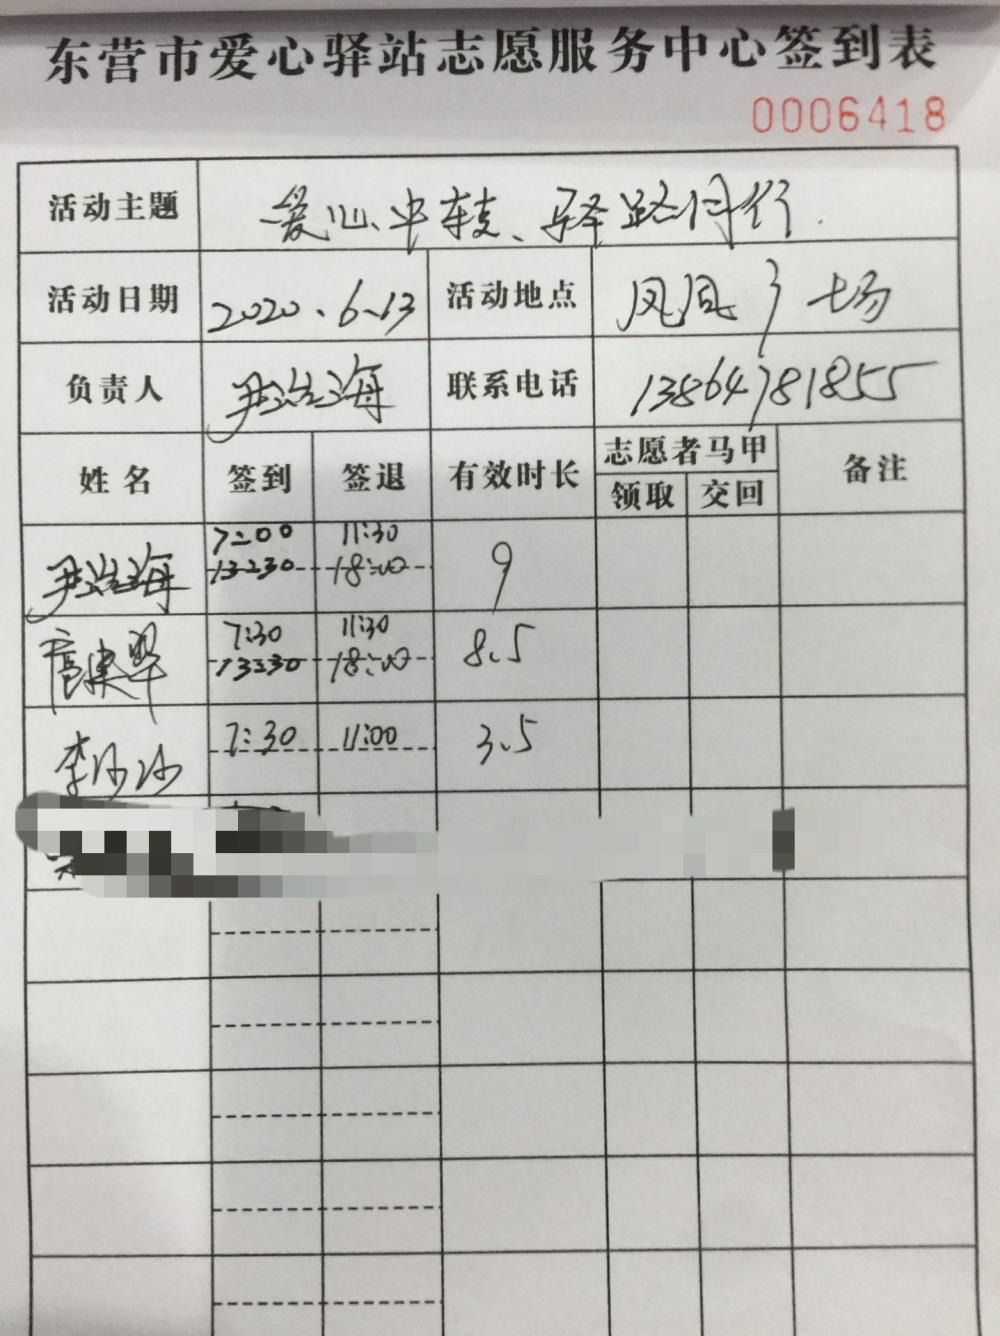 东营市爱心驿站志愿服务中心签到表
0006418
活动主题 爱心中转、驿路同行.
活动日期 2020.6.13 活动地点 凤凰广场
负责人 尹浩海 联系电话 13864781855
姓名 签到 签退 有效时长 志愿者马甲 备注
领取 交回
尹浩海 7:00 11:30 9
13:30 18:00
7:30 11:30 8.5
13:30 18:00
李沙沙 7:30 11:00 3.5